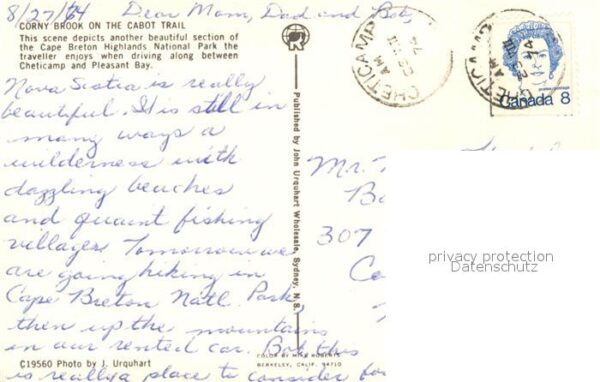 8/27/74 Dear Mom, Dad and Bob,
CORNY BROOK ON THE CABOT TRAIL
This scene depicts another beautiful section of
the Cape Breton Highlands National Park the
traveller enjoys when driving along between
Cheticamp and Pleasant Bay.
Nova Scotia is really
beautiful. It is still in
many ways a
wilderness with
dazzling beaches
and quaint fishing
villages. Tomorrow we
are going hiking in
Cape Breton Nat'l Park,
then up the mountains
in our rented car. But this
is really a place to consider for
C19560 Photo by J. Urquhart
Published by John Urquhart Wholesale, Sydney, N.S.
COLOR BY MIKE ROBERTS
BERKELEY, CALIF. 94710
CHETICAMP
AM
74
CHETICAMP
AM
Canada 8
Mr.
307
privacy protection
Datenschutz